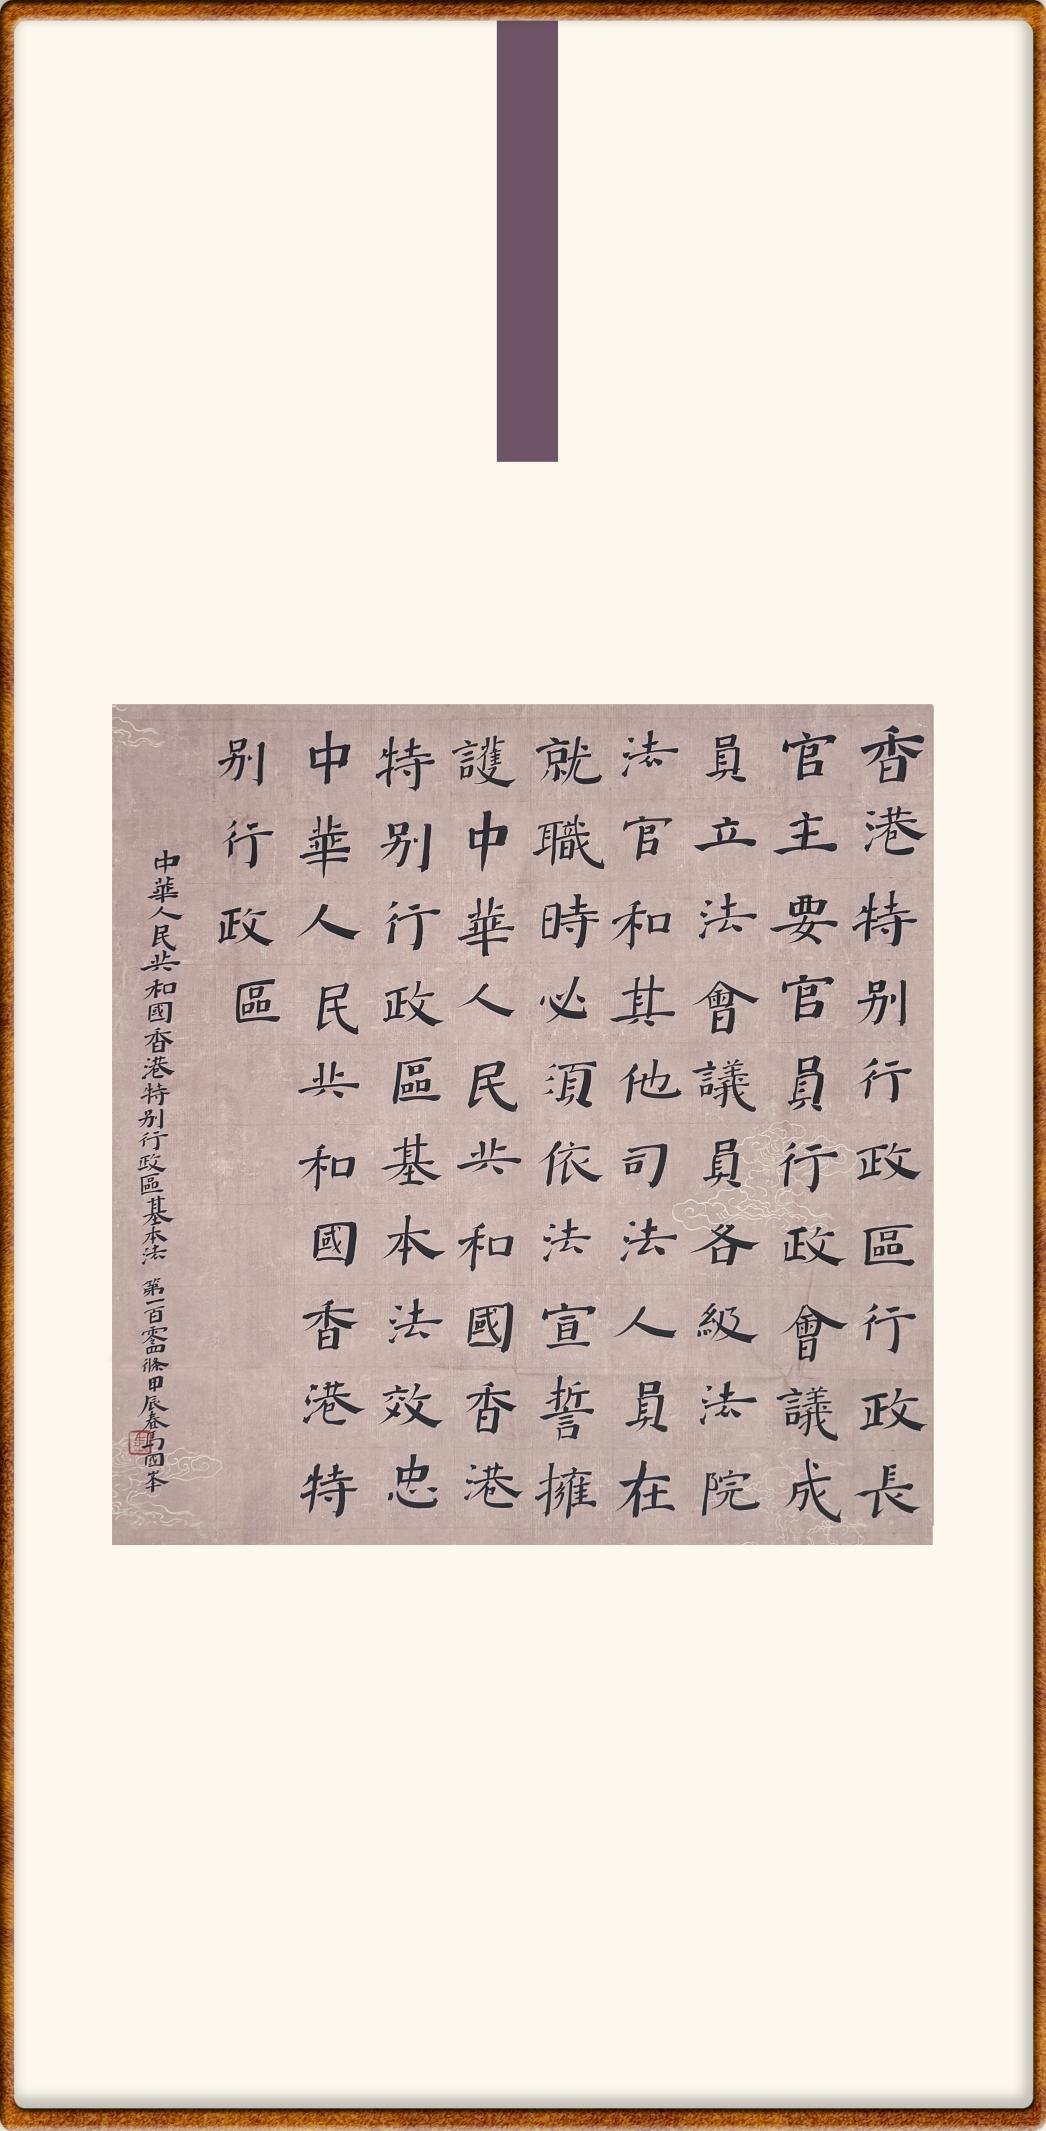 香港特别行政區行政長
官主要官員行政會議成
員立法會議員各級法院
法官和其他司法人員在
就職時必須依法宣誓擁
護中華人民共和國香港
特别行政區基本法效忠
中華人民共和國香港特
别行政區
中華人民共和國香港特别行政區基本法 第一百零四條甲辰春馬國峯